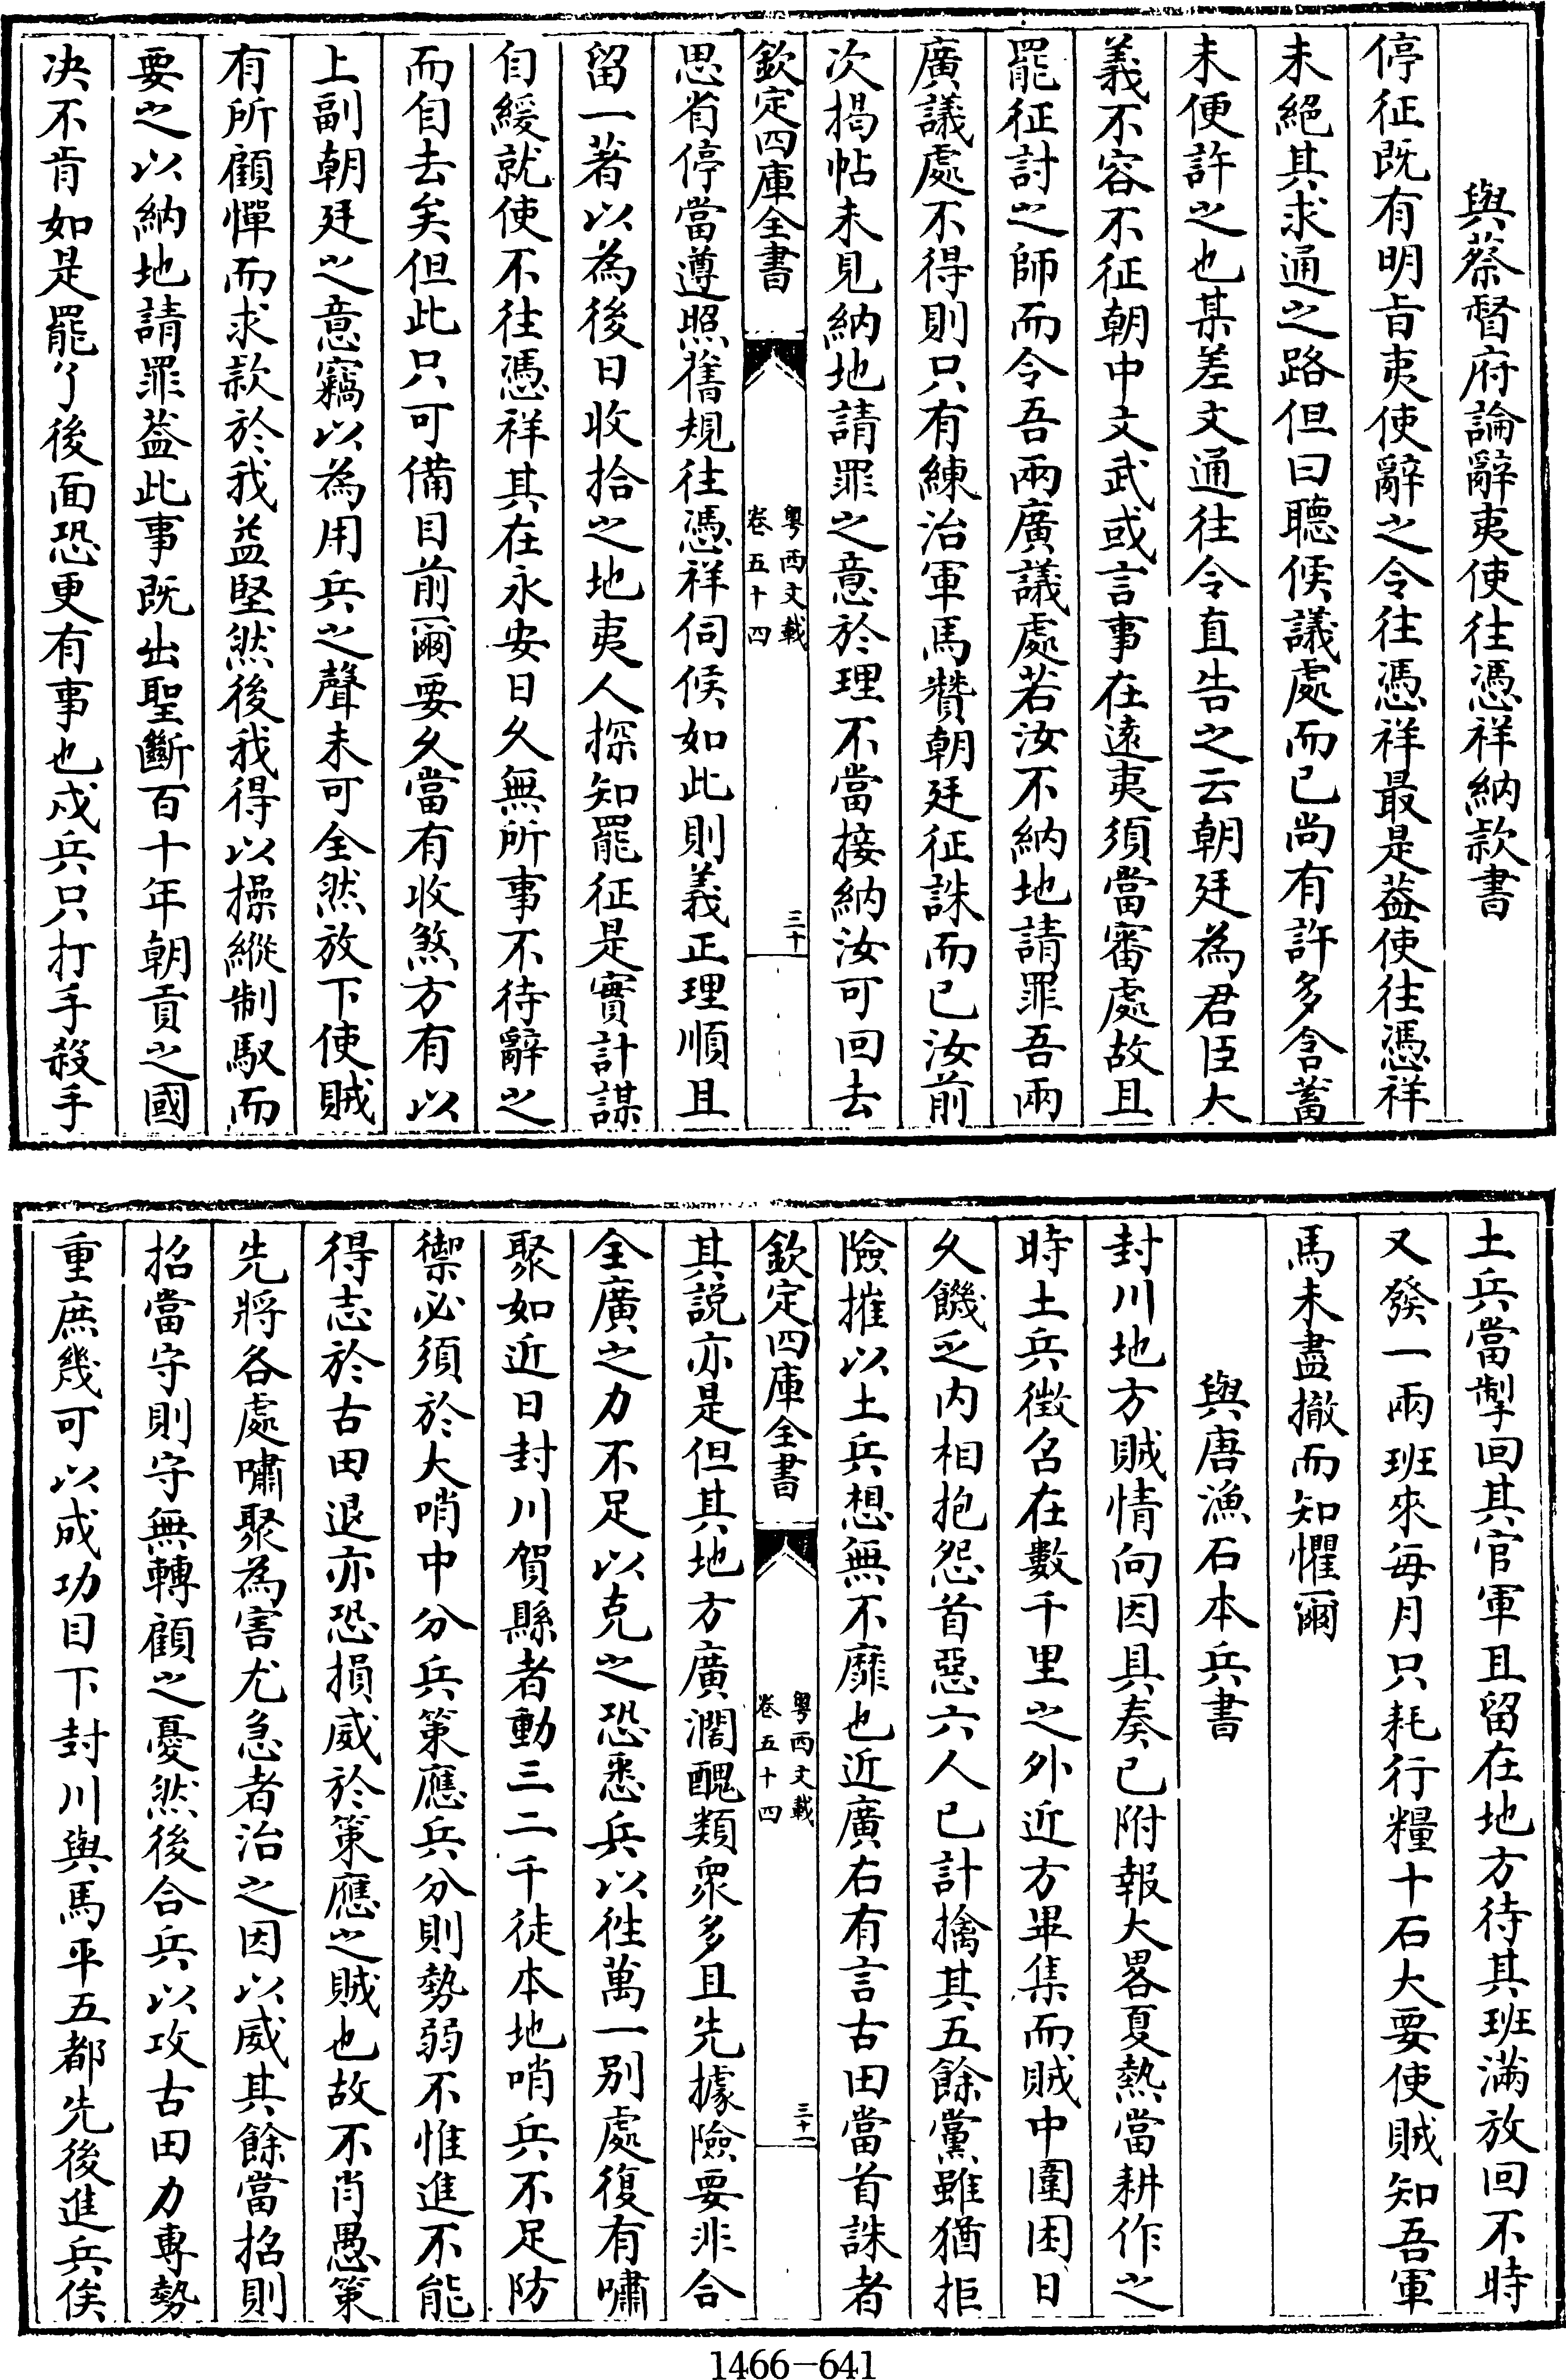 與蔡督府論辭夷使往憑祥納款書
停征既有明旨夷使辭之令往憑祥最是葢使往憑祥
未絕其求通之路但曰聽候議處而已尚有許多含蓄
未便許之也某差文通往令直告之云朝廷為君臣大
義不容不征朝中文武或言事在遠夷須當審處故且
罷征討之師而令吾兩廣議處若汝不納地請罪吾兩
廣議處不得則只有練治軍馬贊朝廷征誅而已汝前
次揭帖未見納地請罪之意於理不當接納汝可回去
欽定四庫全書
粵西文載
卷五十四
三十
思省停當遵照舊規往憑祥伺候如此則義正理順且
留一著以為後日收拾之地夷人探知罷征是實計謀
自緩就使不往憑祥其在永安日久無所事不待辭之
而自去矣但此只可備目前爾要久當有收煞方有以
上副朝廷之意竊以為用兵之聲未可全然放下使賊
有所顧憚而求款於我益堅然後我得以操縱制馭而
要之以納地請罪葢此事既出聖斷百十年朝貢之國
决不肯如是罷了後面恐更有事也戍兵只打手殺手
土兵當掣回其官軍且留在地方待其班滿放回不時
又發一兩班來每月只耗行糧十石大要使賊知吾軍
馬未盡撤而知懼爾
與唐漁石本兵書
封川地方賊情向因具奏已附報大畧夏熱當耕作之
時土兵徵名在數千里之外近方畢集而賊中圍困日
久饑乏内相抱怨首惡六人已計擒其五餘黨雖猶拒
險摧以土兵想無不靡也近廣右有言古田當首誅者
欽定四庫全書
粵西文載
卷五十四
三十一
其説亦是但其地方廣濶醜類衆多且先據險要非合
全廣之力不足以克之恐悉兵以徃萬一别處復有嘯
聚如近日封川賀縣者動三二千徒本地哨兵不足防
禦必須於大哨中分兵策應兵分則勢弱不惟進不能
得志於古田退亦恐損威於策應之賊也故不肖愚策
先將各處嘯聚為害尤急者治之因以威其餘當招則
招當守則守無轉顧之憂然後合兵以攻古田力專勢
重庶幾可以成功目下封川與馬平五都先後進兵俟
1466-641